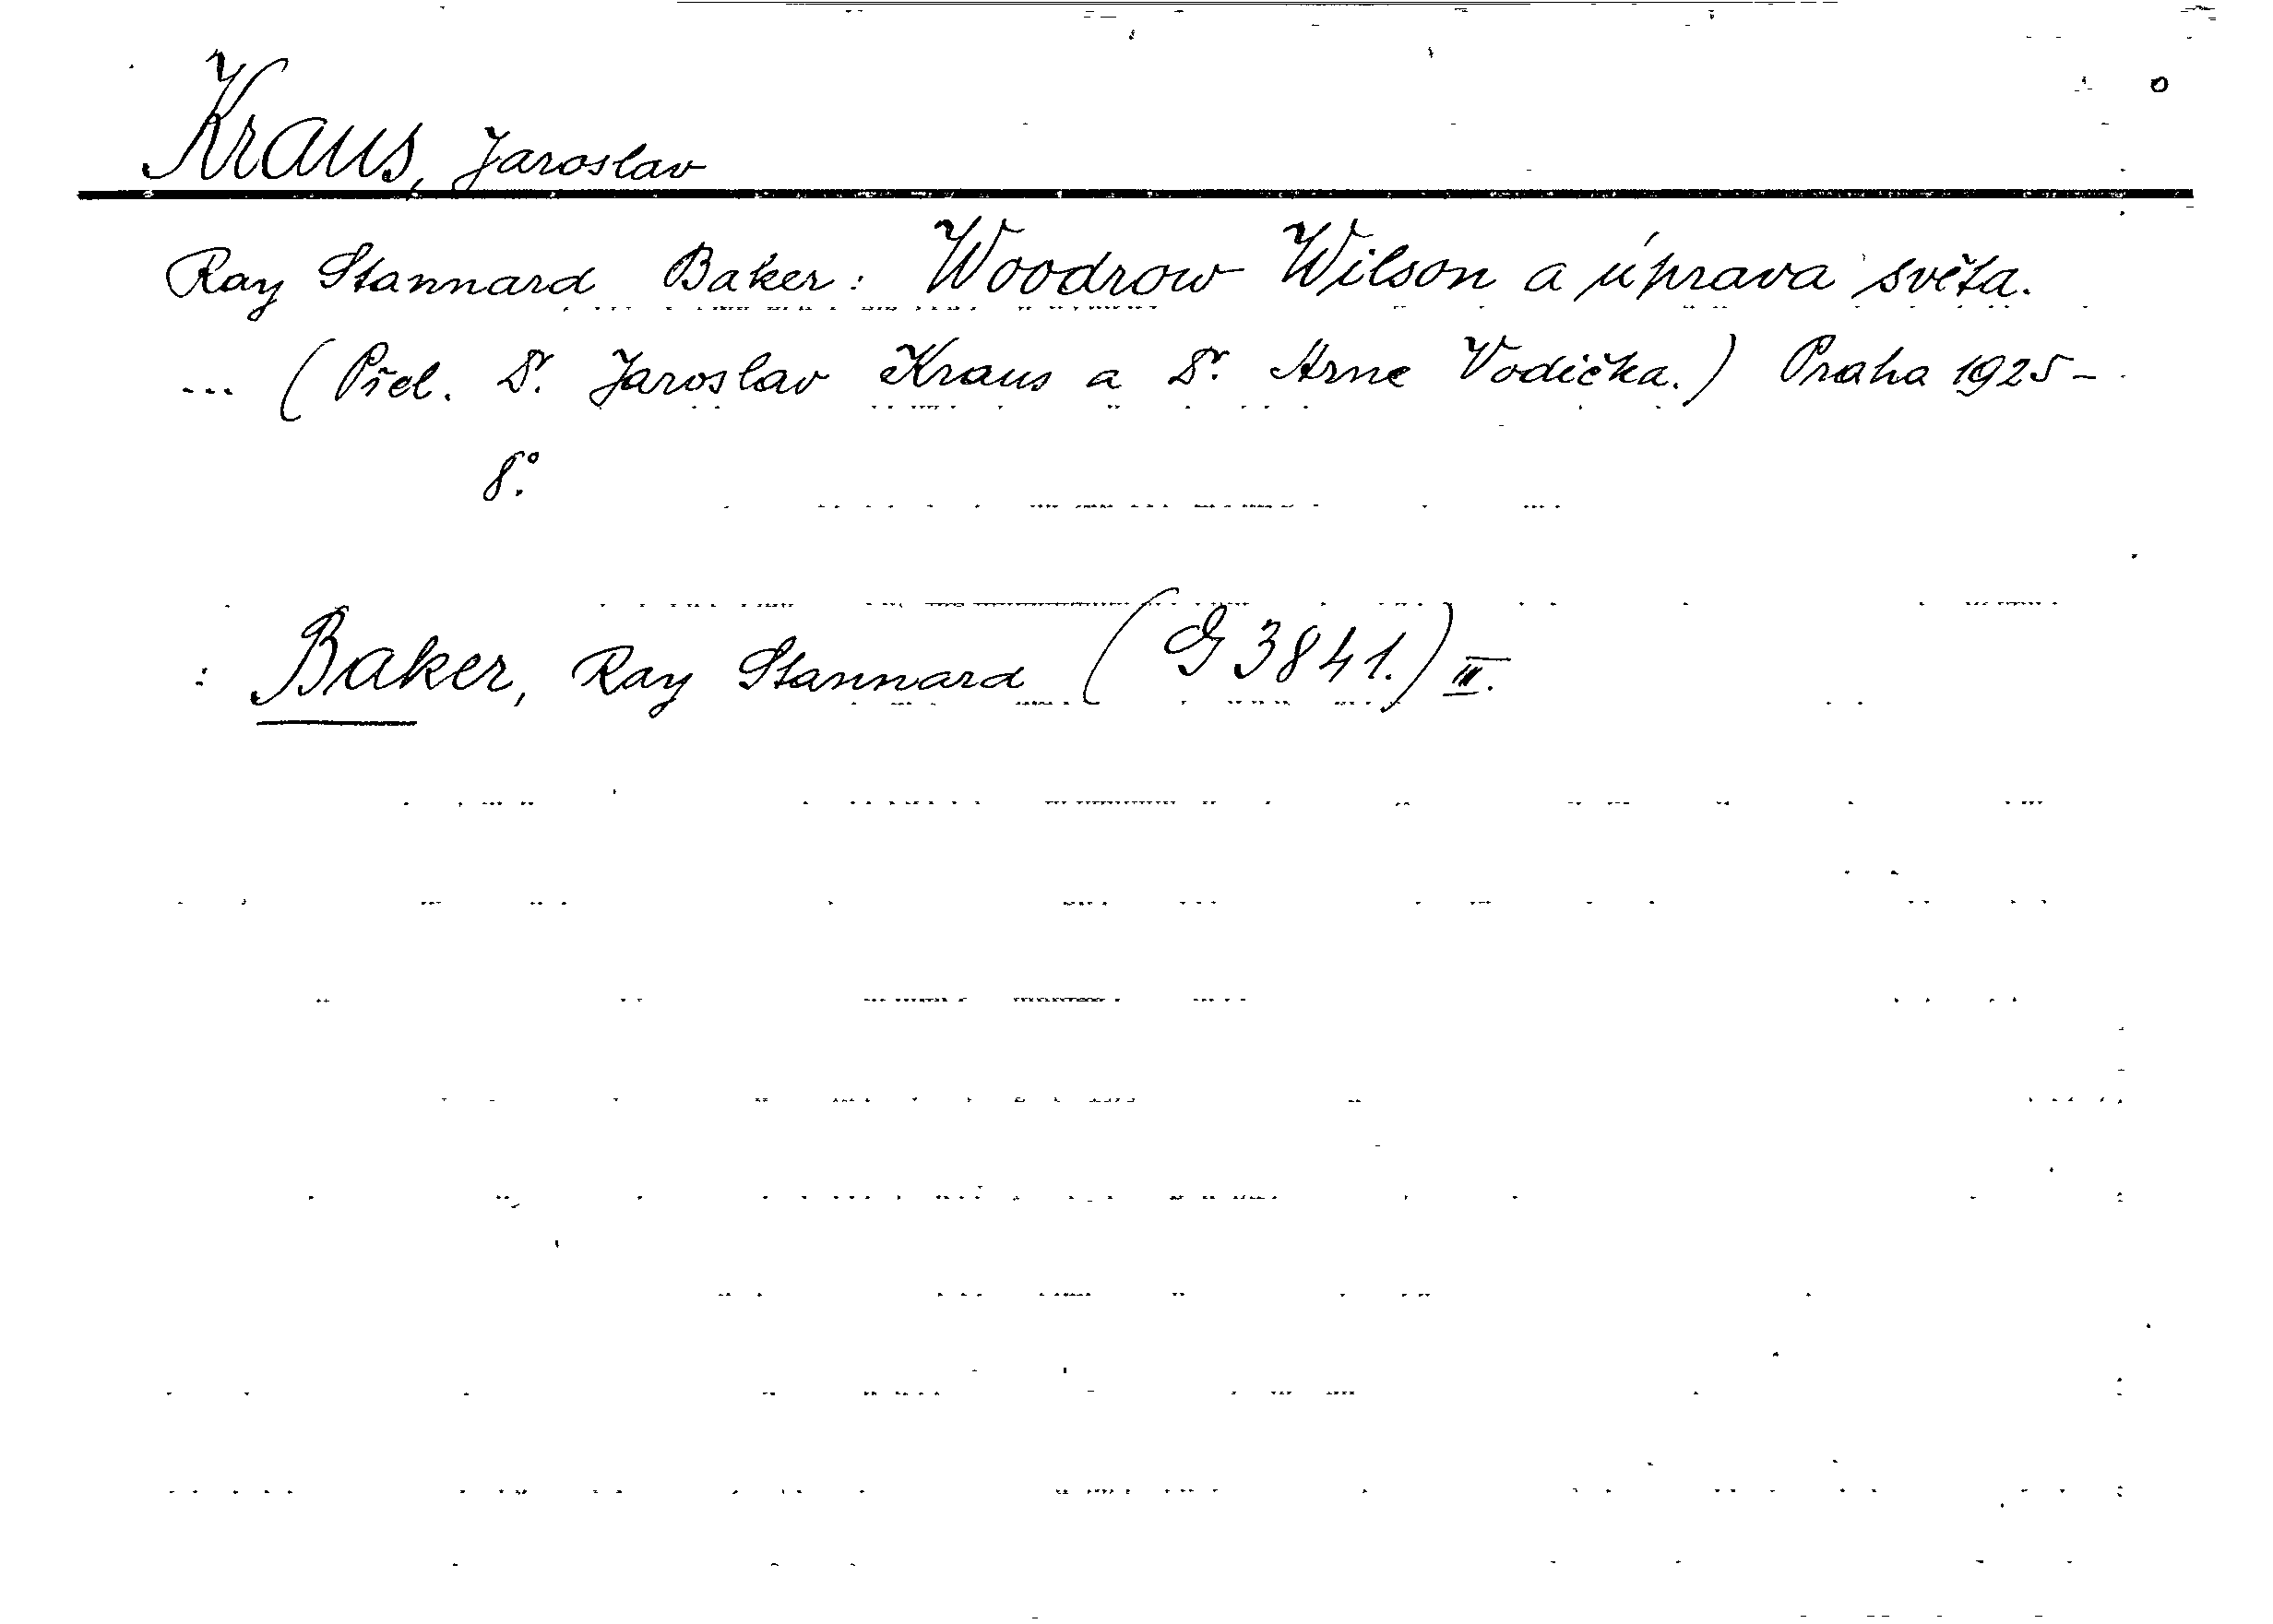 Kraus, Jaroslav
Ray Stannard Baker: Woodrow Wilson a úprava světa.
... (Přel. Dr. Jaroslav Kraus a Dr. Arne Vodička.) Praha 1925-
8°.
: Baker, Ray Stannard (G 3841.) III.